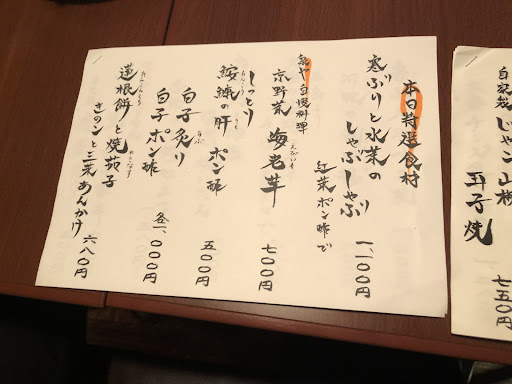 本日特選食材
寒ぶりと水菜の
しゃぶしゃぶ
紅葉ポン酢で
一、一〇〇円
魚や自慢料理
京野菜 海老芋 七〇〇円
えびいも
しっとり
鮟鱇の肝 ポン酢 五〇〇円
白子炙り
あぶ
白子ポン酢 各一、〇〇〇円
蓮根餅と焼茄子
きのこと三菜あんかけ 六八〇円
じゃこ山椒
玉子焼
七五〇円